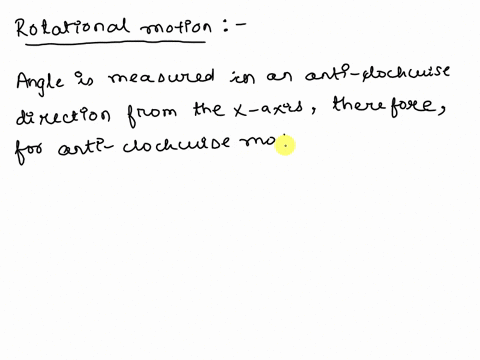 Rotational motion :-
Angle is measured in an anti-clockwise
direction from the x-axis, therefore,
for anti-clockwise mo